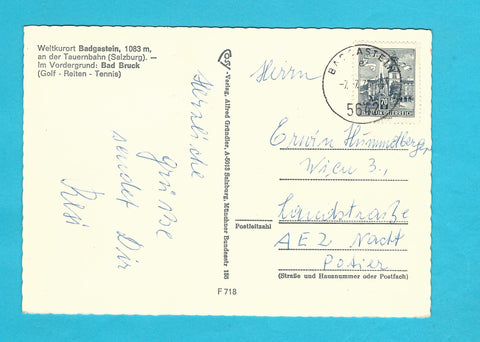 Weltkurort Badgastein, 1083 m,
an der Tauernbahn (Salzburg). —
Im Vordergrund: Bad Bruck
(Golf - Reiten - Tennis)
Herzliche
Grüße
sendet Dir
Resi
Cosy-Verlag, Alfred Gründler, A-5015 Salzburg, Münchner Bundesstr 155
F 718
BADGASTEIN
5640
Herrn
Erwin Hummelberger
Wien 3.,
Landstraße
AEZ Nacht
Potier
Postleitzahl
(Straße und Hausnummer oder Postfach)